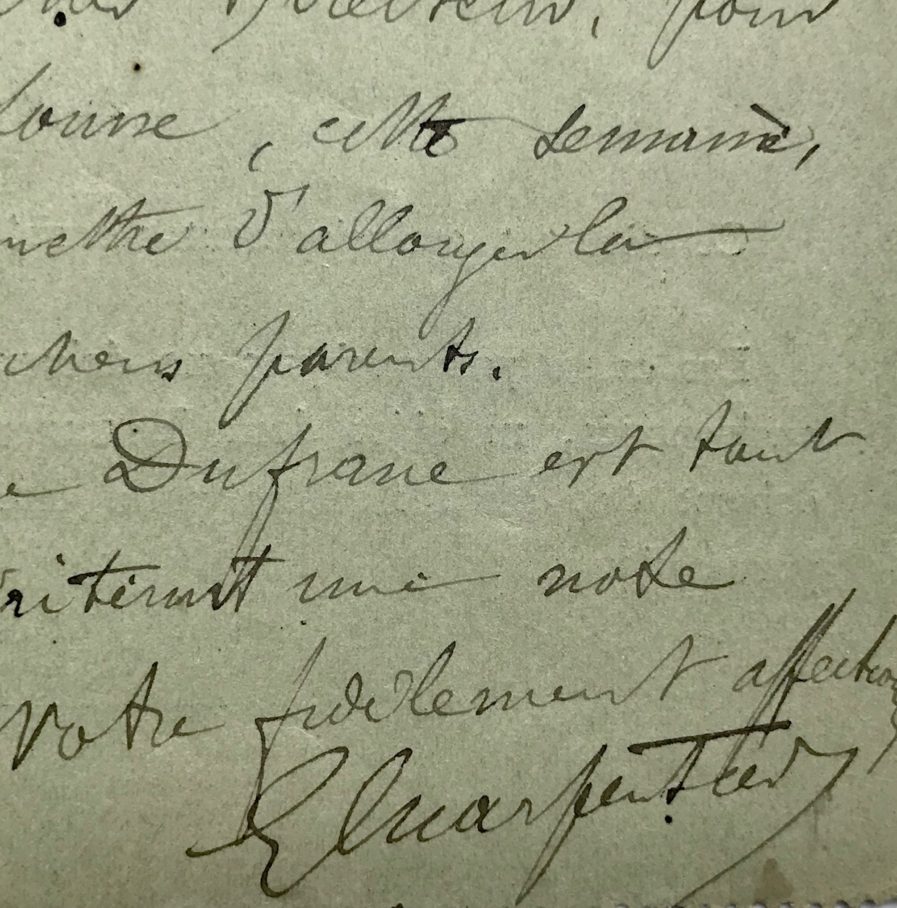 Directeur, pour
donne, cette semaine,
mettre d'allonger la
chers parents.
e Dufrane est tout
une note
Votre fidèlement affection
Charpentier